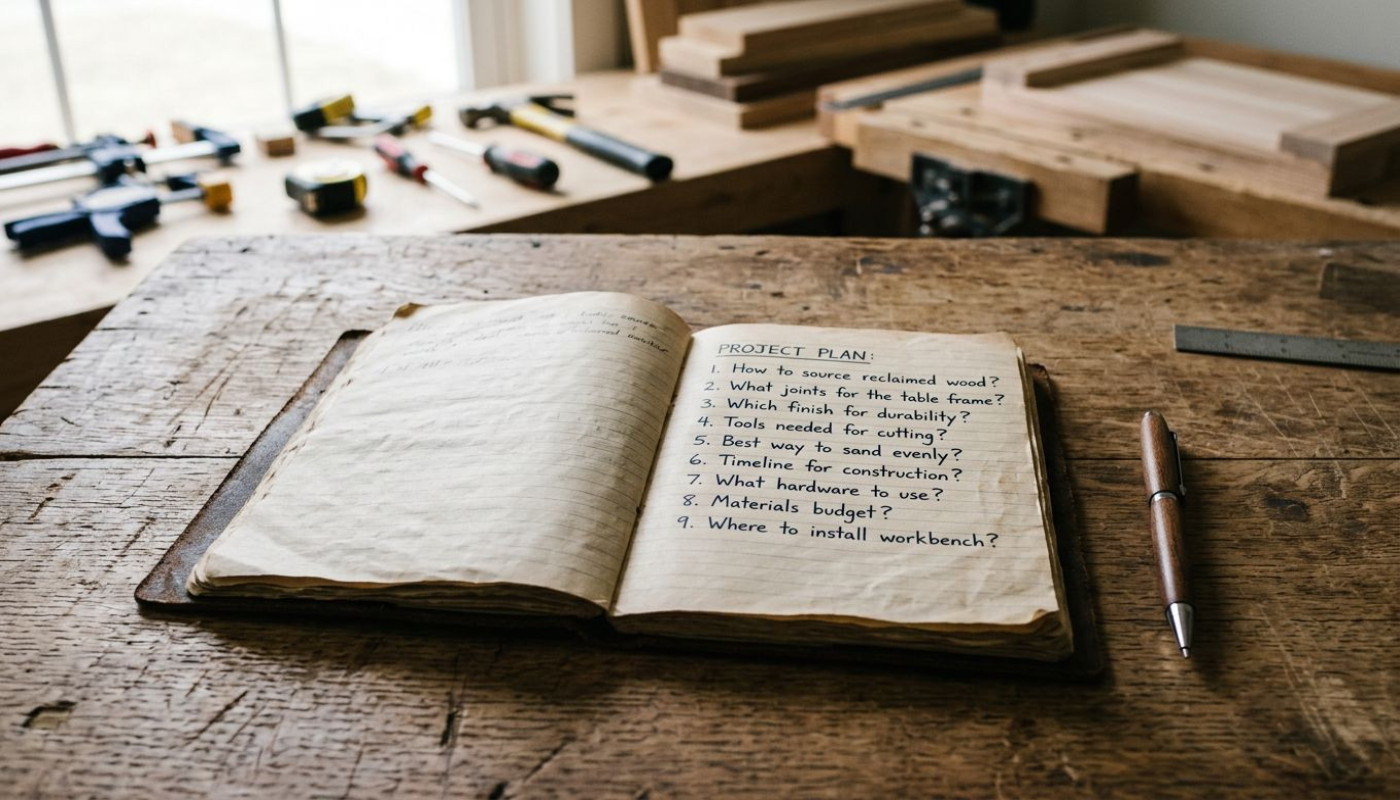 PROJECT PLAN:
1. How to source reclaimed wood?
2. What joints for the table frame?
3. Which finish for durability?
4. Tools needed for cutting?
5. Best way to sand evenly?
6. Timeline for construction?
7. What hardware to use?
8. Materials budget?
9. Where to install workbench?